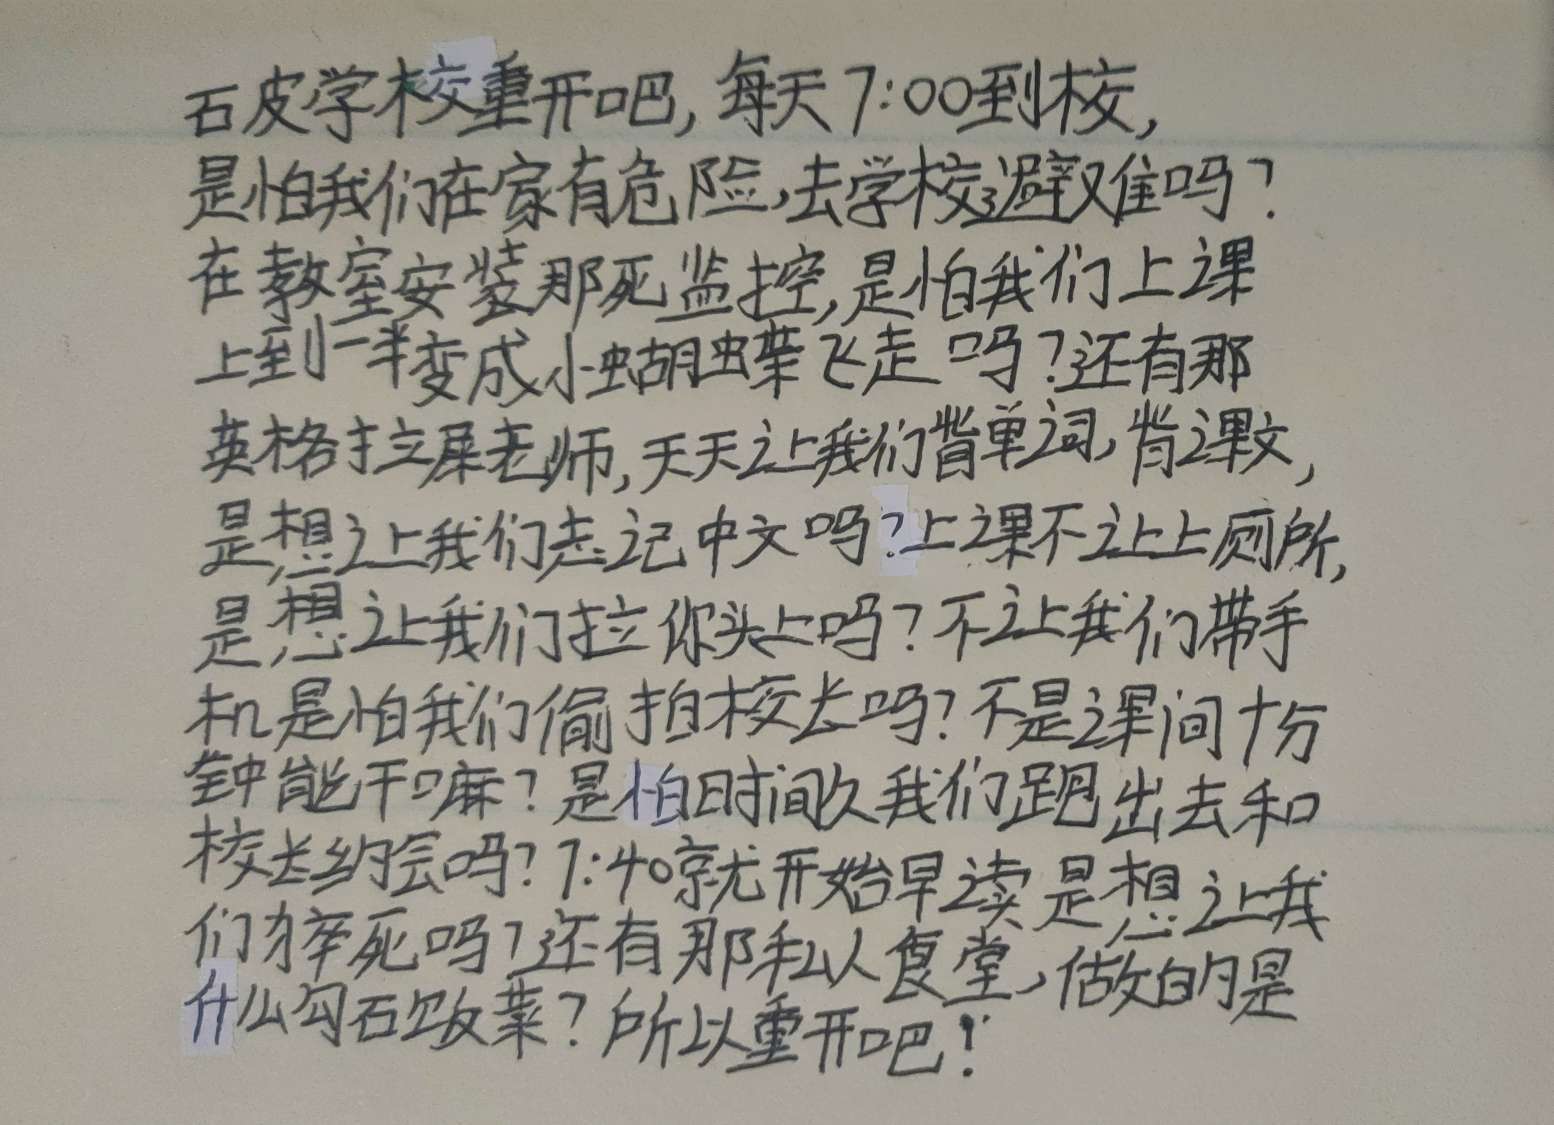 石皮学校重开吧,每天7:00到校,
是怕我们在家有危险,去学校避难吗?
在教室安装那死监控,是怕我们上课
上到一半变成小蝴蝶飞走吗?还有那
英格拉屎老师,天天让我们背单词,背课文,
是想让我们忘记中文吗?上课不让上厕所,
是想让我们拉你头上吗?不让我们带手
机是怕我们偷拍校长吗?不是课间十分
钟能干嘛?是怕时间久我们跑出去和
校长约会吗?7:40就开始早读是想让我
们猝死吗?还有那私人食堂,做的是
什么勾石饭菜?所以重开吧!